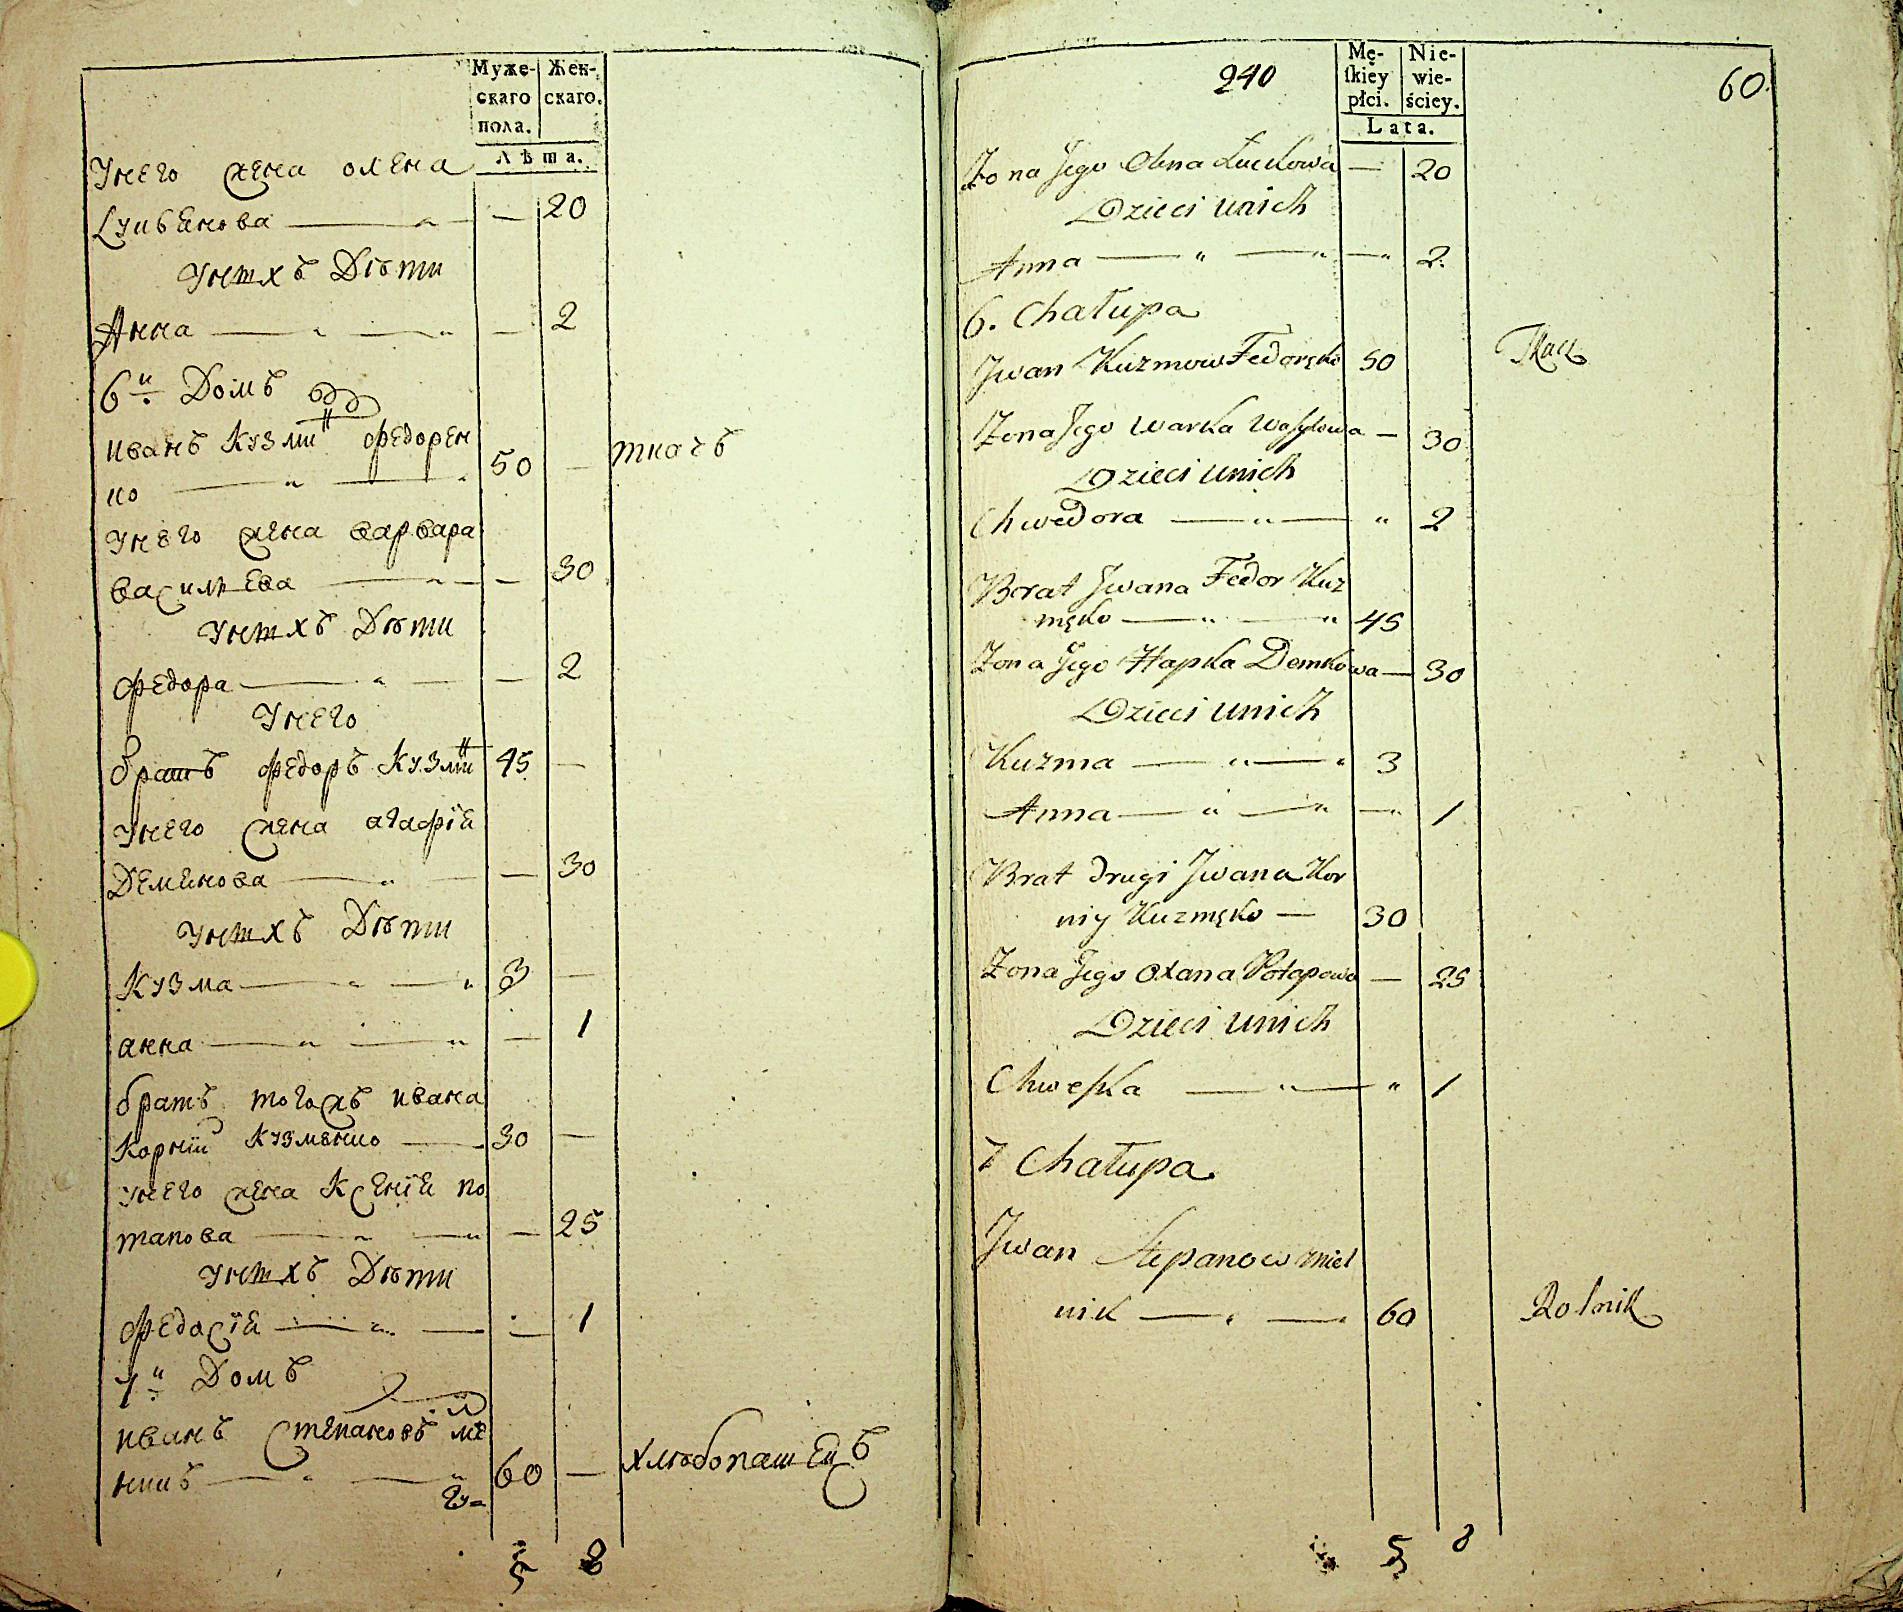 Муже-
скаго
пола.
Жен-
скаго.
Лѣта.
Унего жена олена
Lукьянова — 20
Унихъ Дѣти
Анна — 2
6й Домъ
иванъ Кузми федорен
ко 50 — ткачъ
Унего жена варвара
василѣва — 30
Унихъ Дѣти
федора — 2
Унего
братъ федоръ Кузми 45 —
Унего жена агафїя
Деминова — 30
Унихъ Дѣти
Кузма 3 —
анна — 1
братъ тогожъ ивана
Корнїи Кузменко 30 —
унего жена Ксенїя по
тапова — 25
Унихъ Дѣти
федосїя — 1
7й Домъ
иванъ Степановъ ме
никъ 60 — хлѣбопашецъ
5 8
240
60.
Mę-
ſkiey
płci.
Nie-
wie-
ściey.
Lata.
Zona Jego Olena Łuckowa — 20
Dzieci unich
Anna — 2.
6. Chałupa
Jwan Kuzmow Fedoręko 50 Tkacz
Zona Jego Warka Wasylowa — 30
Dzieci unich
Chwedora — 2
Brat Jwana Fedor Kuz
męko 45
Zona Jego Hapka Demkowa — 30
Dzieci unich
Kuzma 3
Anna — 1
Brat drugi Jwana Kor
niy Kuzmęko — 30
Zona Jego Oxana Potapowa — 25
Dzieci unich
Chweſka 1
7 Chałupa
Jwan Stepanow miel
nik 60 Rolnik
5 8